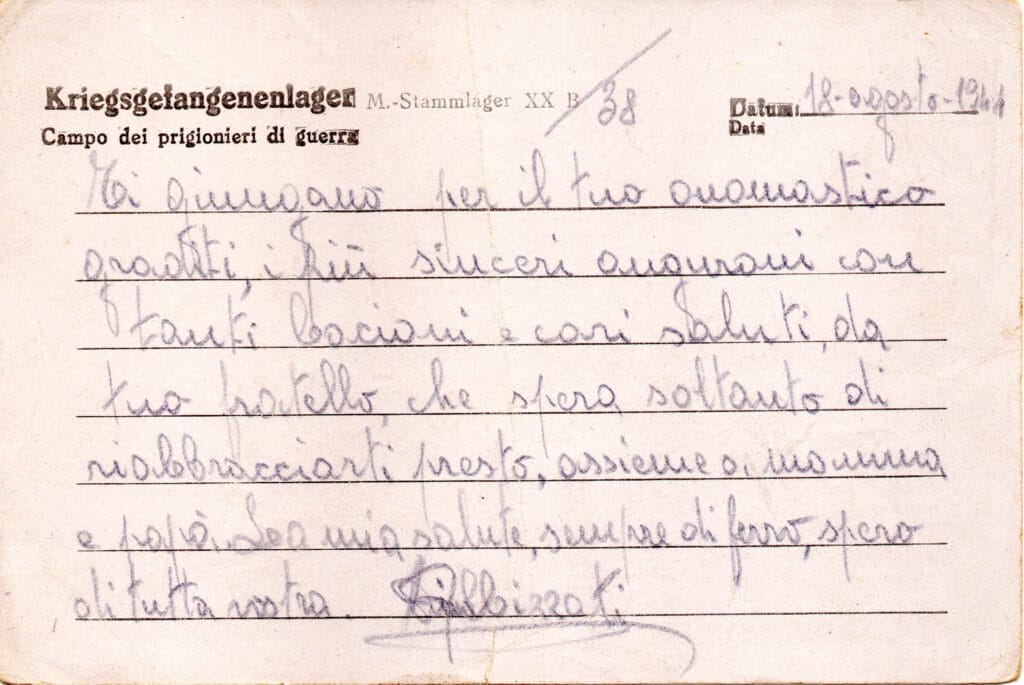 Kriegsgefangenenlager M.-Stammlager XX B /38 Datum: 18-agosto-1944
Campo dei prigionieri di guerra Data
Ti giungano per il tuo onomastico
graditi, i più sinceri auguroni con
tanti bacioni e cari saluti, da
tuo fratello, che spera soltanto di
riabbracciarti presto, assieme a mamma
e papà. La mia salute, sempre di ferro, spero
di tutta vostra.